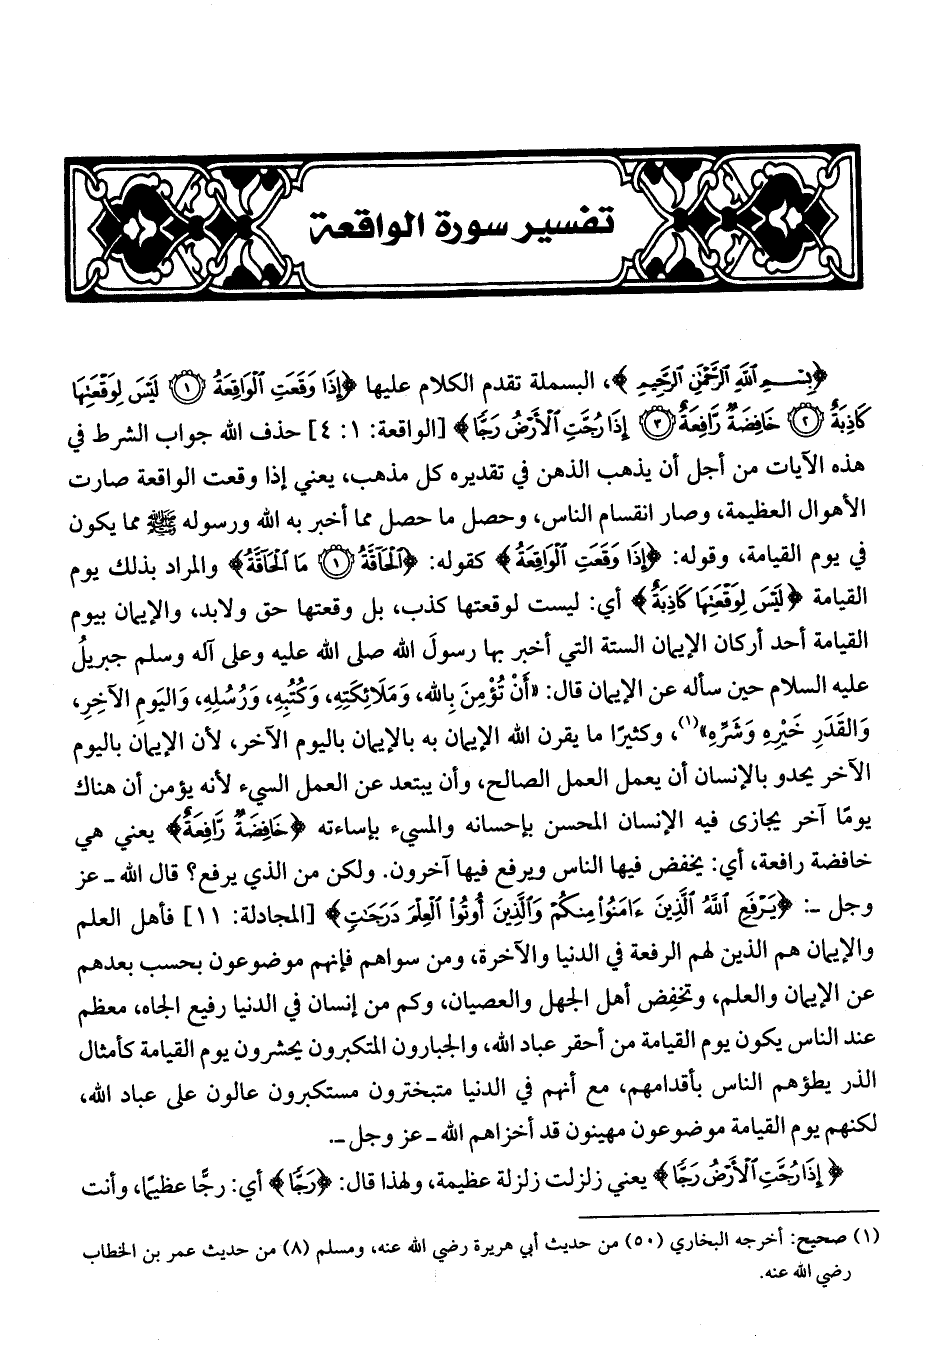 تفسير سورة الواقعة
﴿بِسْمِ اللَّهِ الرَّحْمَٰنِ الرَّحِيمِ﴾، البسملة تقدم الكلام عليها ﴿إِذَا وَقَعَتِ الْوَاقِعَةُ ۝١ لَيْسَ لِوَقْعَتِهَا
كَاذِبَةٌ ۝٢ خَافِضَةٌ رَّافِعَةٌ ۝٣ إِذَا رُجَّتِ الْأَرْضُ رَجًّا﴾ [الواقعة: ١: ٤] حذف الله جواب الشرط في
هذه الآيات من أجل أن يذهب الذهن في تقديره كل مذهب، يعني إذا وقعت الواقعة صارت
الأهوال العظيمة، وصار انقسام الناس، وحصل ما حصل مما أخبر به الله ورسوله ﷺ مما يكون
في يوم القيامة، وقوله: ﴿إِذَا وَقَعَتِ الْوَاقِعَةُ﴾ كقوله: ﴿الْحَاقَّةُ ۝١ مَا الْحَاقَّةُ﴾ والمراد بذلك يوم
القيامة ﴿لَيْسَ لِوَقْعَتِهَا كَاذِبَةٌ﴾ أي: ليست لوقعتها كذب، بل وقعتها حق ولابد، والإيمان بيوم
القيامة أحد أركان الإيمان الستة التي أخبر بها رسولَ الله صلى الله عليه وعلى آله وسلم جبريلُ
عليه السلام حين سأله عن الإيمان قال: «أَنْ تُؤْمِنَ بِالله، وَمَلَائِكَتِهِ، وَكُتُبِهِ، وَرُسُلِهِ، وَاليَومِ الآخِرِ،
وَالقَدَرِ خَيْرِهِ وَشَرِّهِ»(١)، وكثيرًا ما يقرن الله الإيمان به بالإيمان باليوم الآخر، لأن الإيمان باليوم
الآخر يحدو بالإنسان أن يعمل العمل الصالح، وأن يبتعد عن العمل السيء لأنه يؤمن أن هناك
يومًا آخر يجازى فيه الإنسان المحسن بإحسانه والمسيء بإساءته ﴿خَافِضَةٌ رَّافِعَةٌ﴾ يعني هي
خافضة رافعة، أي: يخفض فيها الناس ويرفع فيها آخرون. ولكن من الذي يرفع؟ قال الله ـ عز
وجل ـ: ﴿يَرْفَعِ اللَّهُ الَّذِينَ ءَامَنُوا مِنكُمْ وَالَّذِينَ أُوتُوا الْعِلْمَ دَرَجَاتٍ﴾ [المجادلة: ١١] فأهل العلم
والإيمان هم الذين لهم الرفعة في الدنيا والآخرة، ومن سواهم فإنهم موضوعون بحسب بعدهم
عن الإيمان والعلم، وتخفِض أهل الجهل والعصيان، وكم من إنسان في الدنيا رفيع الجاه، معظم
عند الناس يكون يوم القيامة من أحقر عباد الله، والجبارون المتكبرون يحشرون يوم القيامة كأمثال
الذر يطؤهم الناس بأقدامهم، مع أنهم في الدنيا متبخترون مستكبرون عالون على عباد الله،
لكنهم يوم القيامة موضوعون مهينون قد أخزاهم الله ـ عز وجل ـ.
﴿إِذَا رُجَّتِ الْأَرْضُ رَجًّا﴾ يعني زلزلت زلزلة عظيمة، ولهذا قال: ﴿رَجًّا﴾ أي: رجًّا عظيمًا، وأنت
(١) صحيح: أخرجه البخاري (٥٠) من حديث أبي هريرة رضي الله عنه، ومسلم (٨) من حديث عمر بن الخطاب
رضي الله عنه.